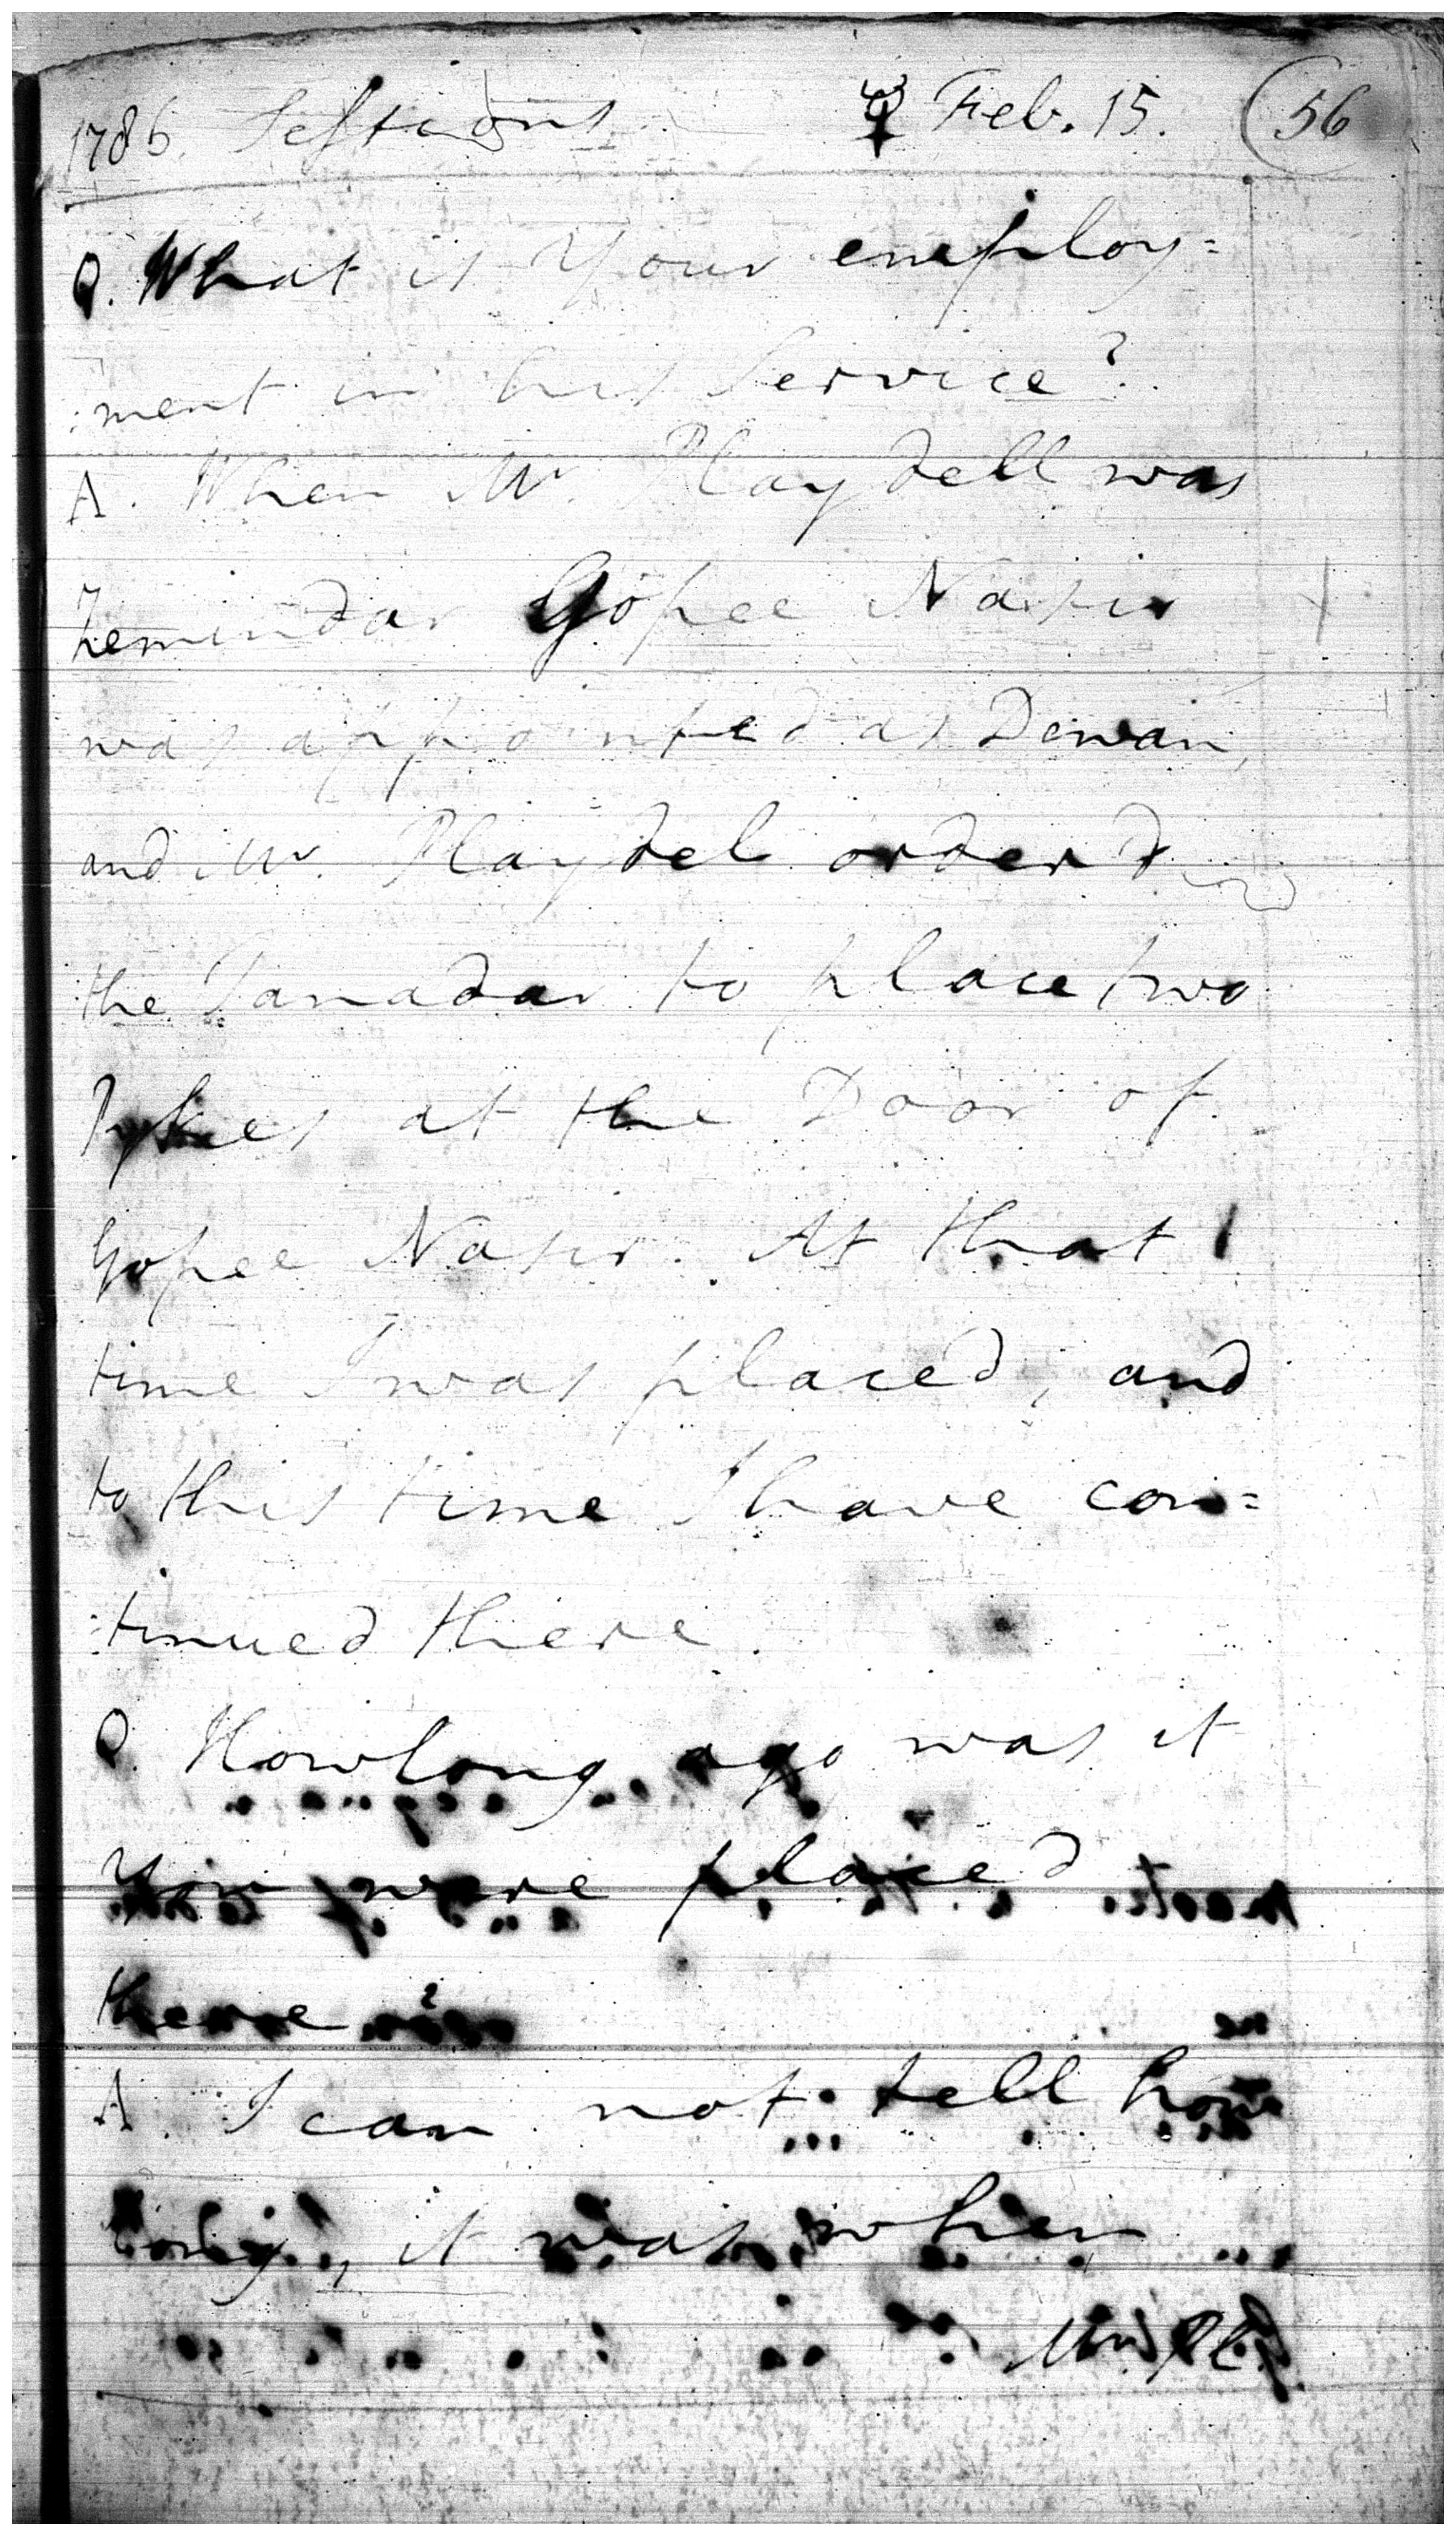 1786. Sessions. ☿ Feb. 15. (56
Q. What is Your employ=
:ment in his Service?
A. When Mr. Playdell was
Zemindar Gopee Nasir
was appointed as Dewan,
and Mr. Playdel order'd
the Tanadar to place two
Pykes at the Door of
Gopee Nasir. At that
time I was placed, and
to this time I have con=
:tinued there.
Q. How long ago was it
You were placed
there?
A. I can not tell how
long, it was when
Mr. Pl